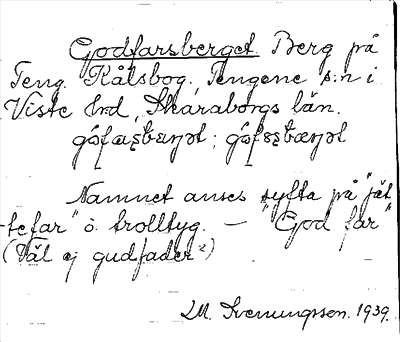 Godfarsberget. Berg på
Teng. Kålsbog, Tengene s:n i
Viste hrd, Skaraborgs län.
Namnet anses syfta på "jät
-tefar" o. trolltyg. — "God far"
(Väl ej gudfader?)
M. Svenungsson. 1939.